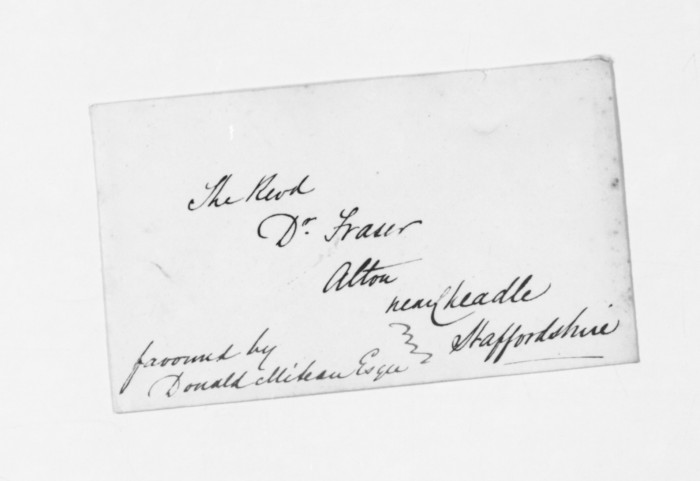 The Revd
Dr. Fraser
Alton
near Cheadle
Staffordshire
favoured by
Donald McLean Esqre